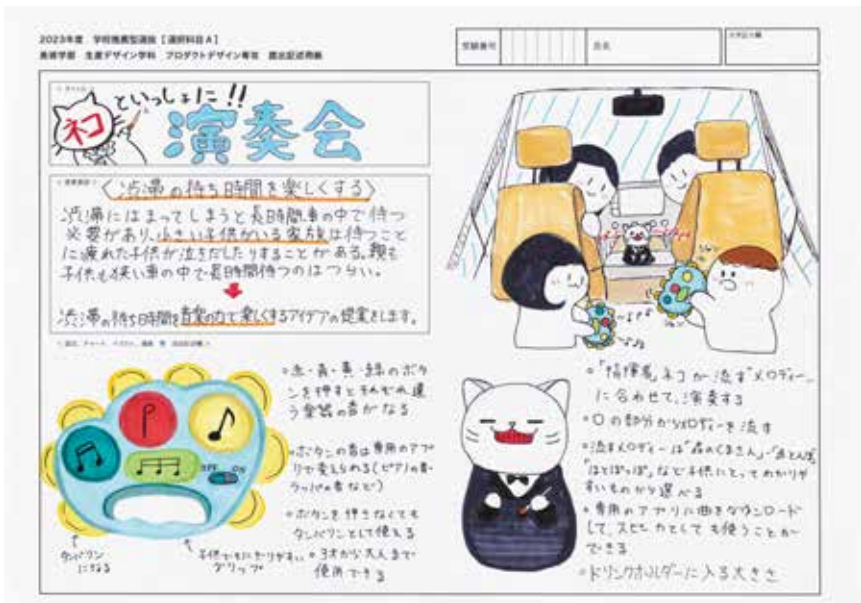 2023年度 学校推薦型選抜 [選択科目A]
美術学部 生産デザイン学科 プロダクトデザイン専攻 提出記述用紙
受験番号
氏名
ネコ
といっしょに!!
演奏会
〈渋滞の待ち時間を楽しくする〉
渋滞にはまってしまうと長時間車の中で待つ
必要があり、小さい子供がいる家族は待つこと
に疲れた子供が泣きだしたりすることがある。親も
子供も狭い車の中で長時間待つのはつらい。
渋滞の待ち時間を音楽の力で楽しくするアイデアの提案をします。
○赤・青・黄・緑のボタ
ンを押すとそれぞれ違
う楽器の音がなる
○ボタンの音は専用のアプ
リで変えられる(ピアノの音・
ラッパの音など)
○ボタンを押さなくても
タンバリンとして使える
○3才から大人まで
使用できる
OFF ON
タンバリン
になる
子供でもにぎりやすい
グリップ
○「指揮者ネコが流すメロディー」
に合わせて演奏する
○口の部分からメロディーを流す
○流すメロディーは「森のくまさん」・「赤とんぼ」
「はとぽっぽ」など子供にとってわかりや
すいものから選べる
○専用のアプリに曲をダウンロード
して、スピーカとしても使うことが
できる
○ドリンクホルダーに入る大きさ